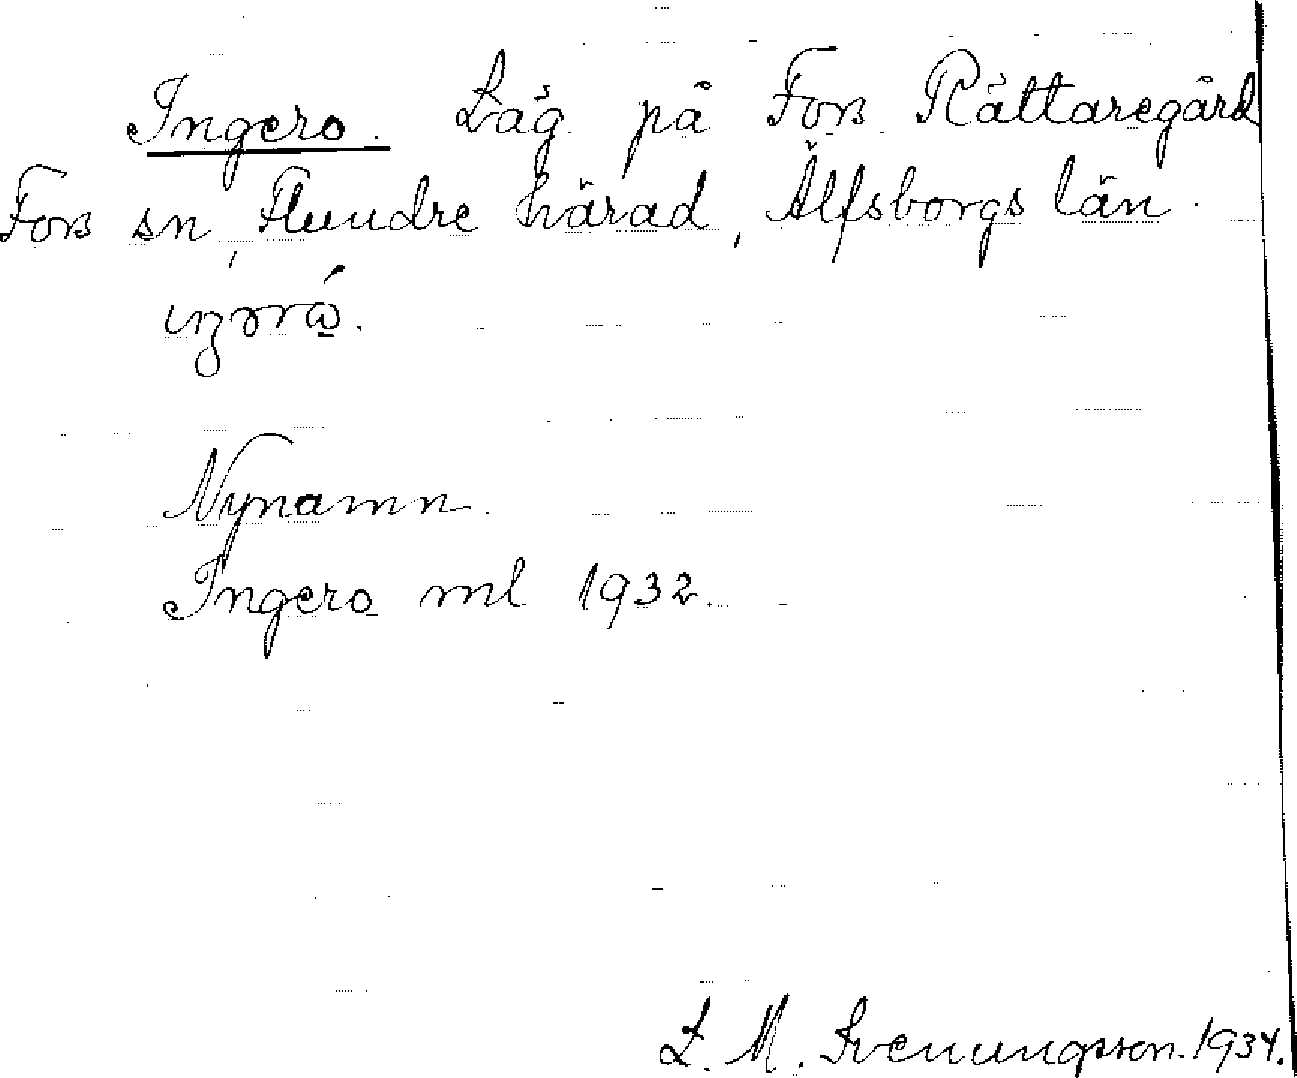 Ingero. Läg. på Fors Rättaregård
Fors sn, Flundre härad, Älfsborgs län.
Nynamn.
Ingero ml 1932.
L. M. Svenungsson. 1934.